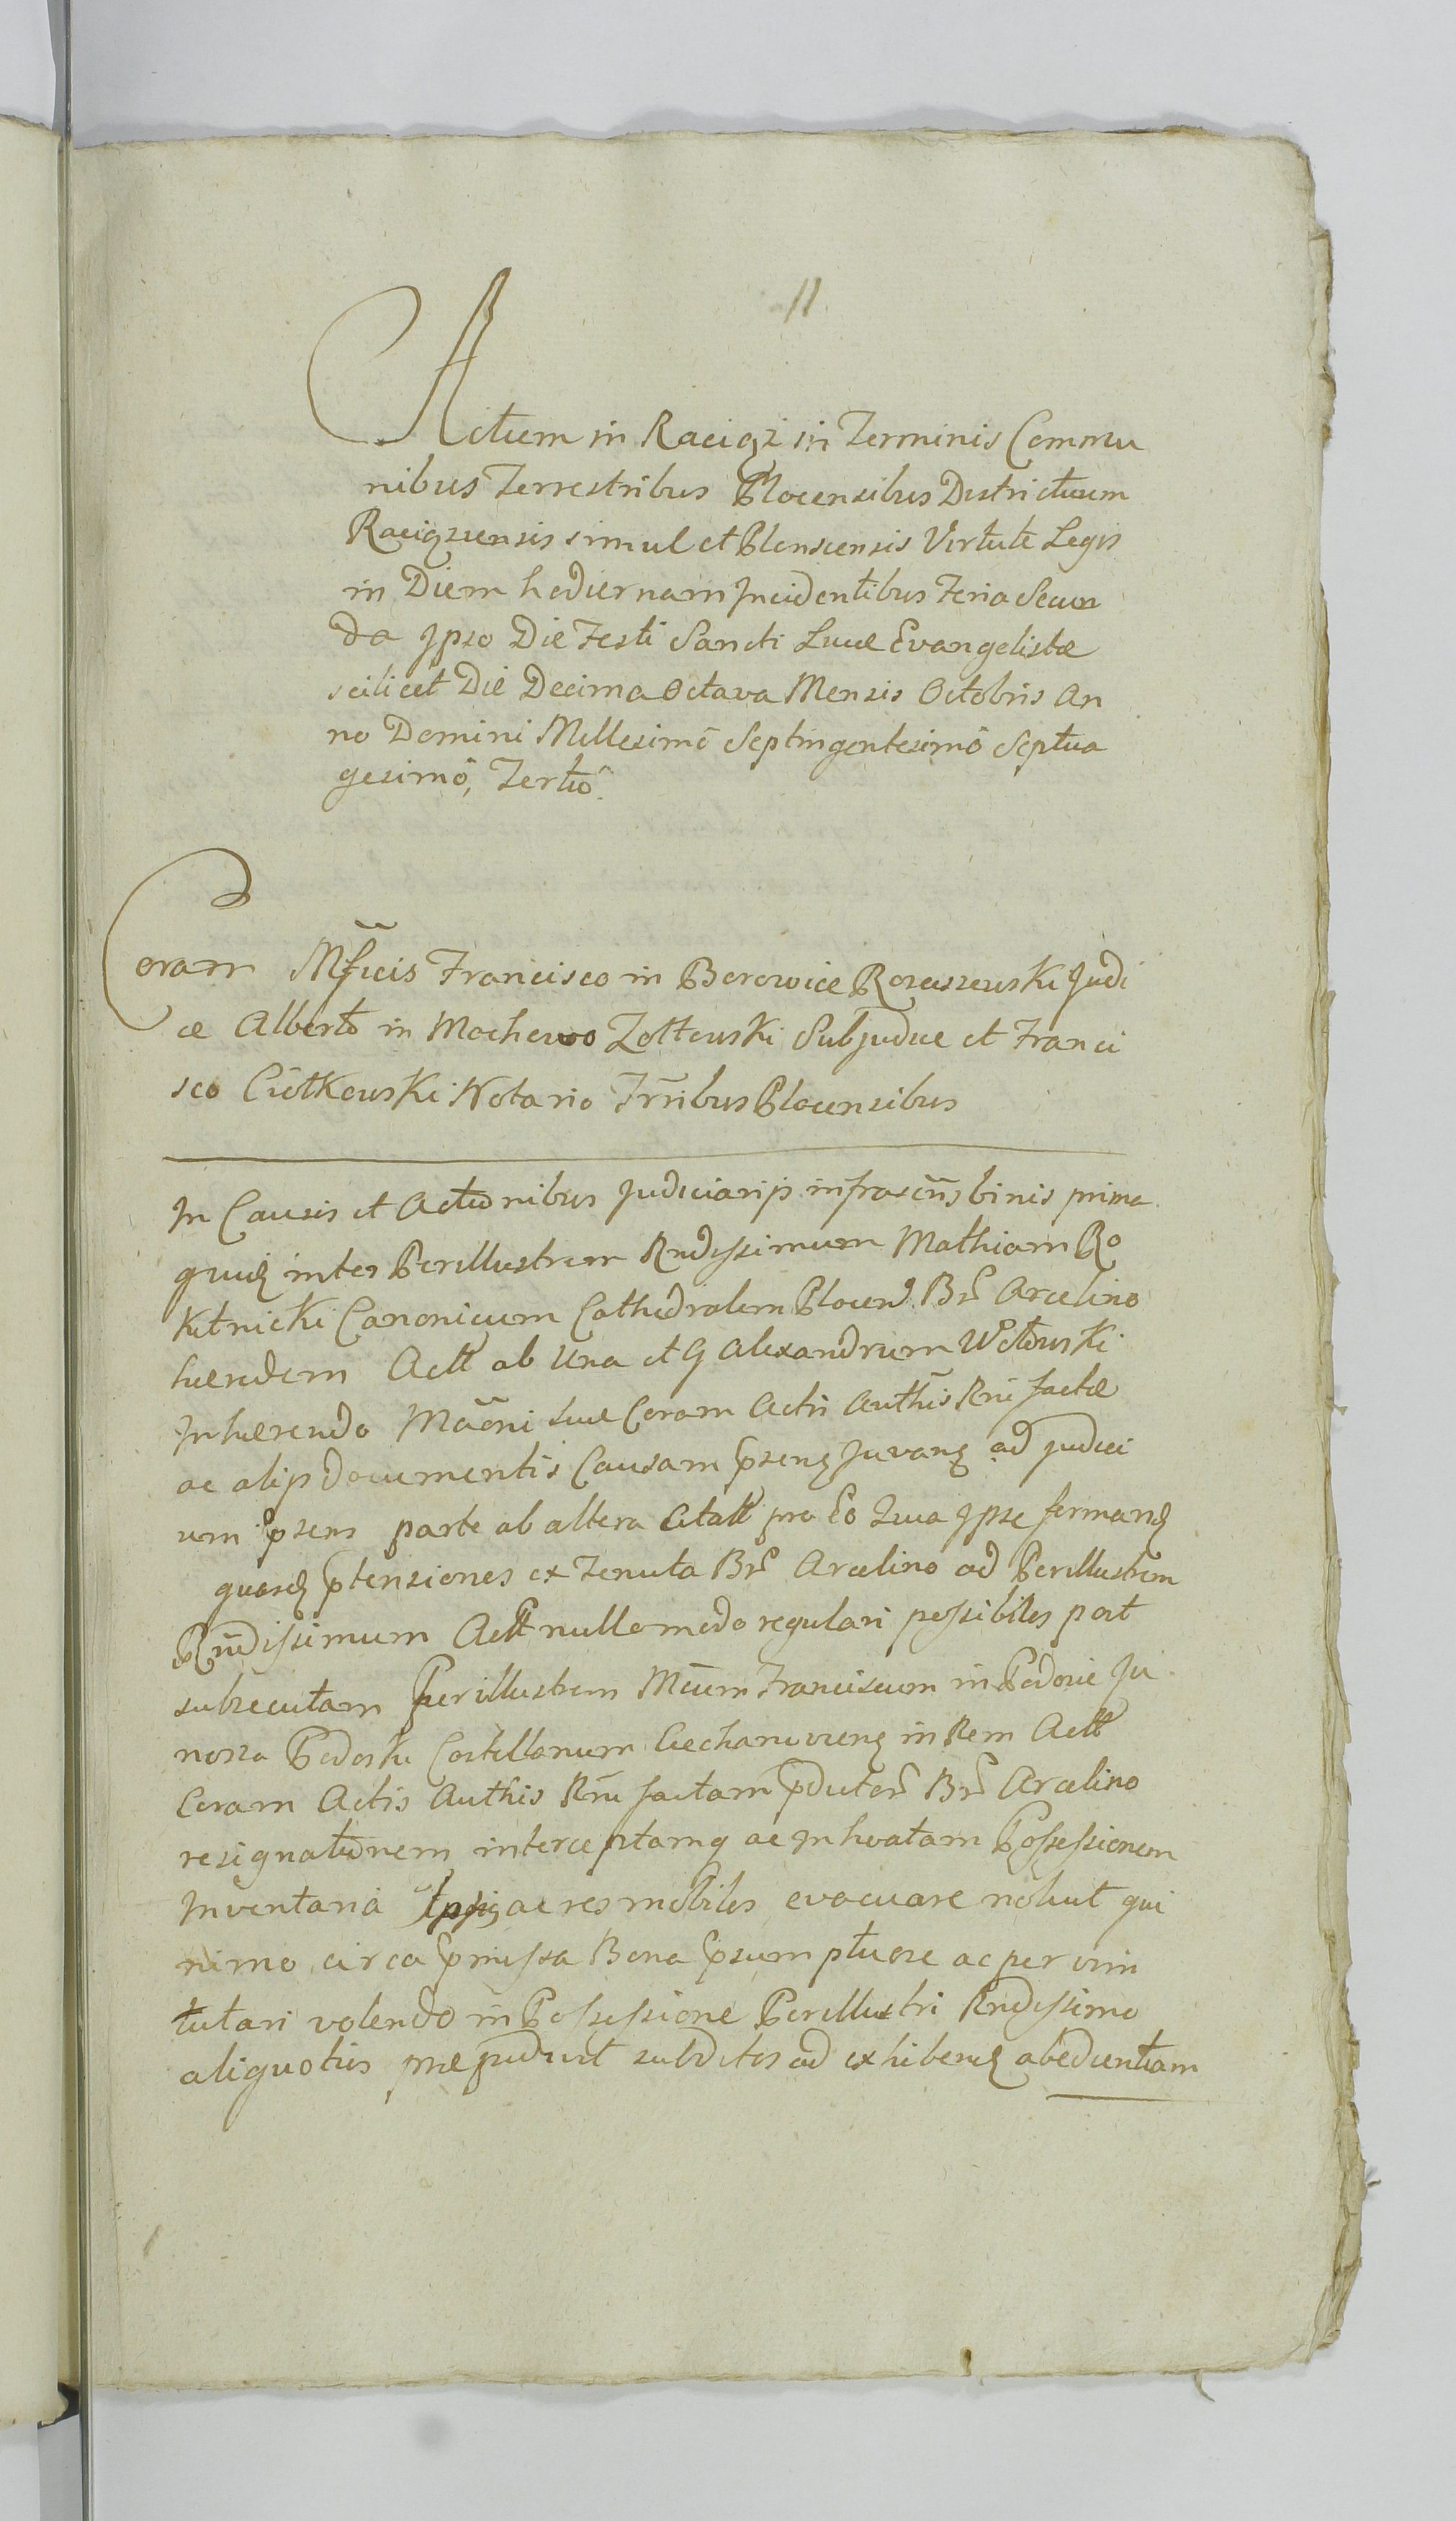 11.
Actum in Raciąz in Terminis Commu
nibus Terrestribus Plocensibus Districtuum
Raciązsiensis simul et Plonscensis Virtute Legis
in Diem hodiernam Incidentibus Feria Secun
da Ipso Die Festi Sancti Lucæ Evangelistæ
scilicet Die Decima Octava Mensis Octobris An
no Domini Millesimô Septingentesimô Septua
gesimô, Tertiô.
Coram Mfficis Francisco in Borowice Rosciszewski Judi
ce Alberto in Mochowo Zołtowski Subjudice et Franci
sco Ciółkowski Notario Trribus Plocensibus
In Causis et Actionibus Judiciarijs infrascris binis prima
quidę inter Perillustrem Rndissimum Mathiam Ro
kitnicki Canonicum Cathedralem Plocens Br Arcelino
hæredem Act ab Una et G Alexandrum Wołowski
Inhærendo Maoni suæ Coram Actis Authis Rni factæ
ac alijs documentis Causam psenę Juvanę ad judici
um psens parte ab altera Citatt pro Eo Quia Ipse formandę
quasdę ptensiones ex Tenuta Br Arcelino ad Perillustrem
Rndissimum Act nullo modo regulari possibiles post
subsecutam per illustrem Mcum Franciscum in Podoie Ju
nosza Podoski Castellanum Ciechanoviensę in Rem Act
Coram Actis Authis Rni factam pdutor Br Arcelino
resignationem interceptamq ac Inhvatam Possessionem
Inventaria ac res mobiles evacuare noluit qui
nimo circa pmissa Bona psumptuose ac per vim
tutari volendo in Possessione Perillustri Rndissimo
aliquoties præpudivit subditos ad exhibendę obedientiam